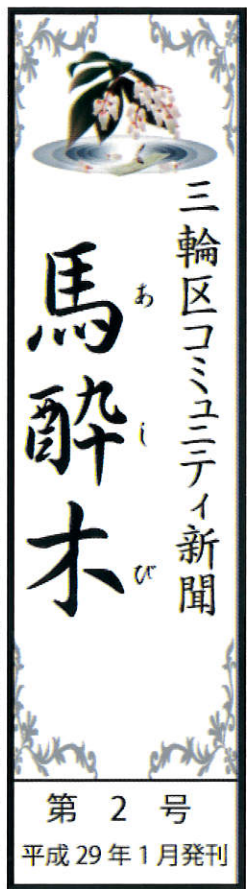 三輪区コミュニティ新聞
馬酔木
あしび
第2号
平成29年1月発刊